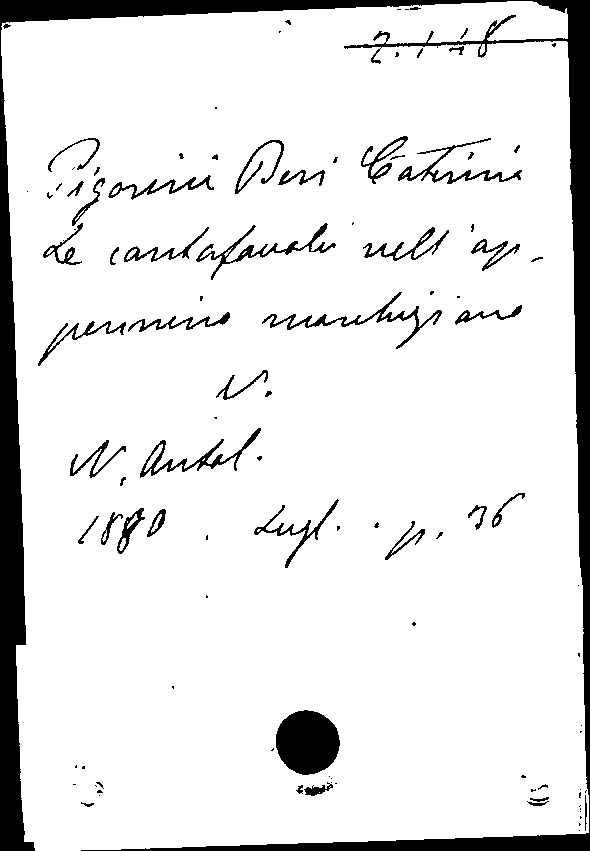 2.1.48
Pigorini Beri Caterina
Le cantafavole nell'ap-
pennino marchigiano
V.
N. Antol.
1880 . Lugl. . p. 36